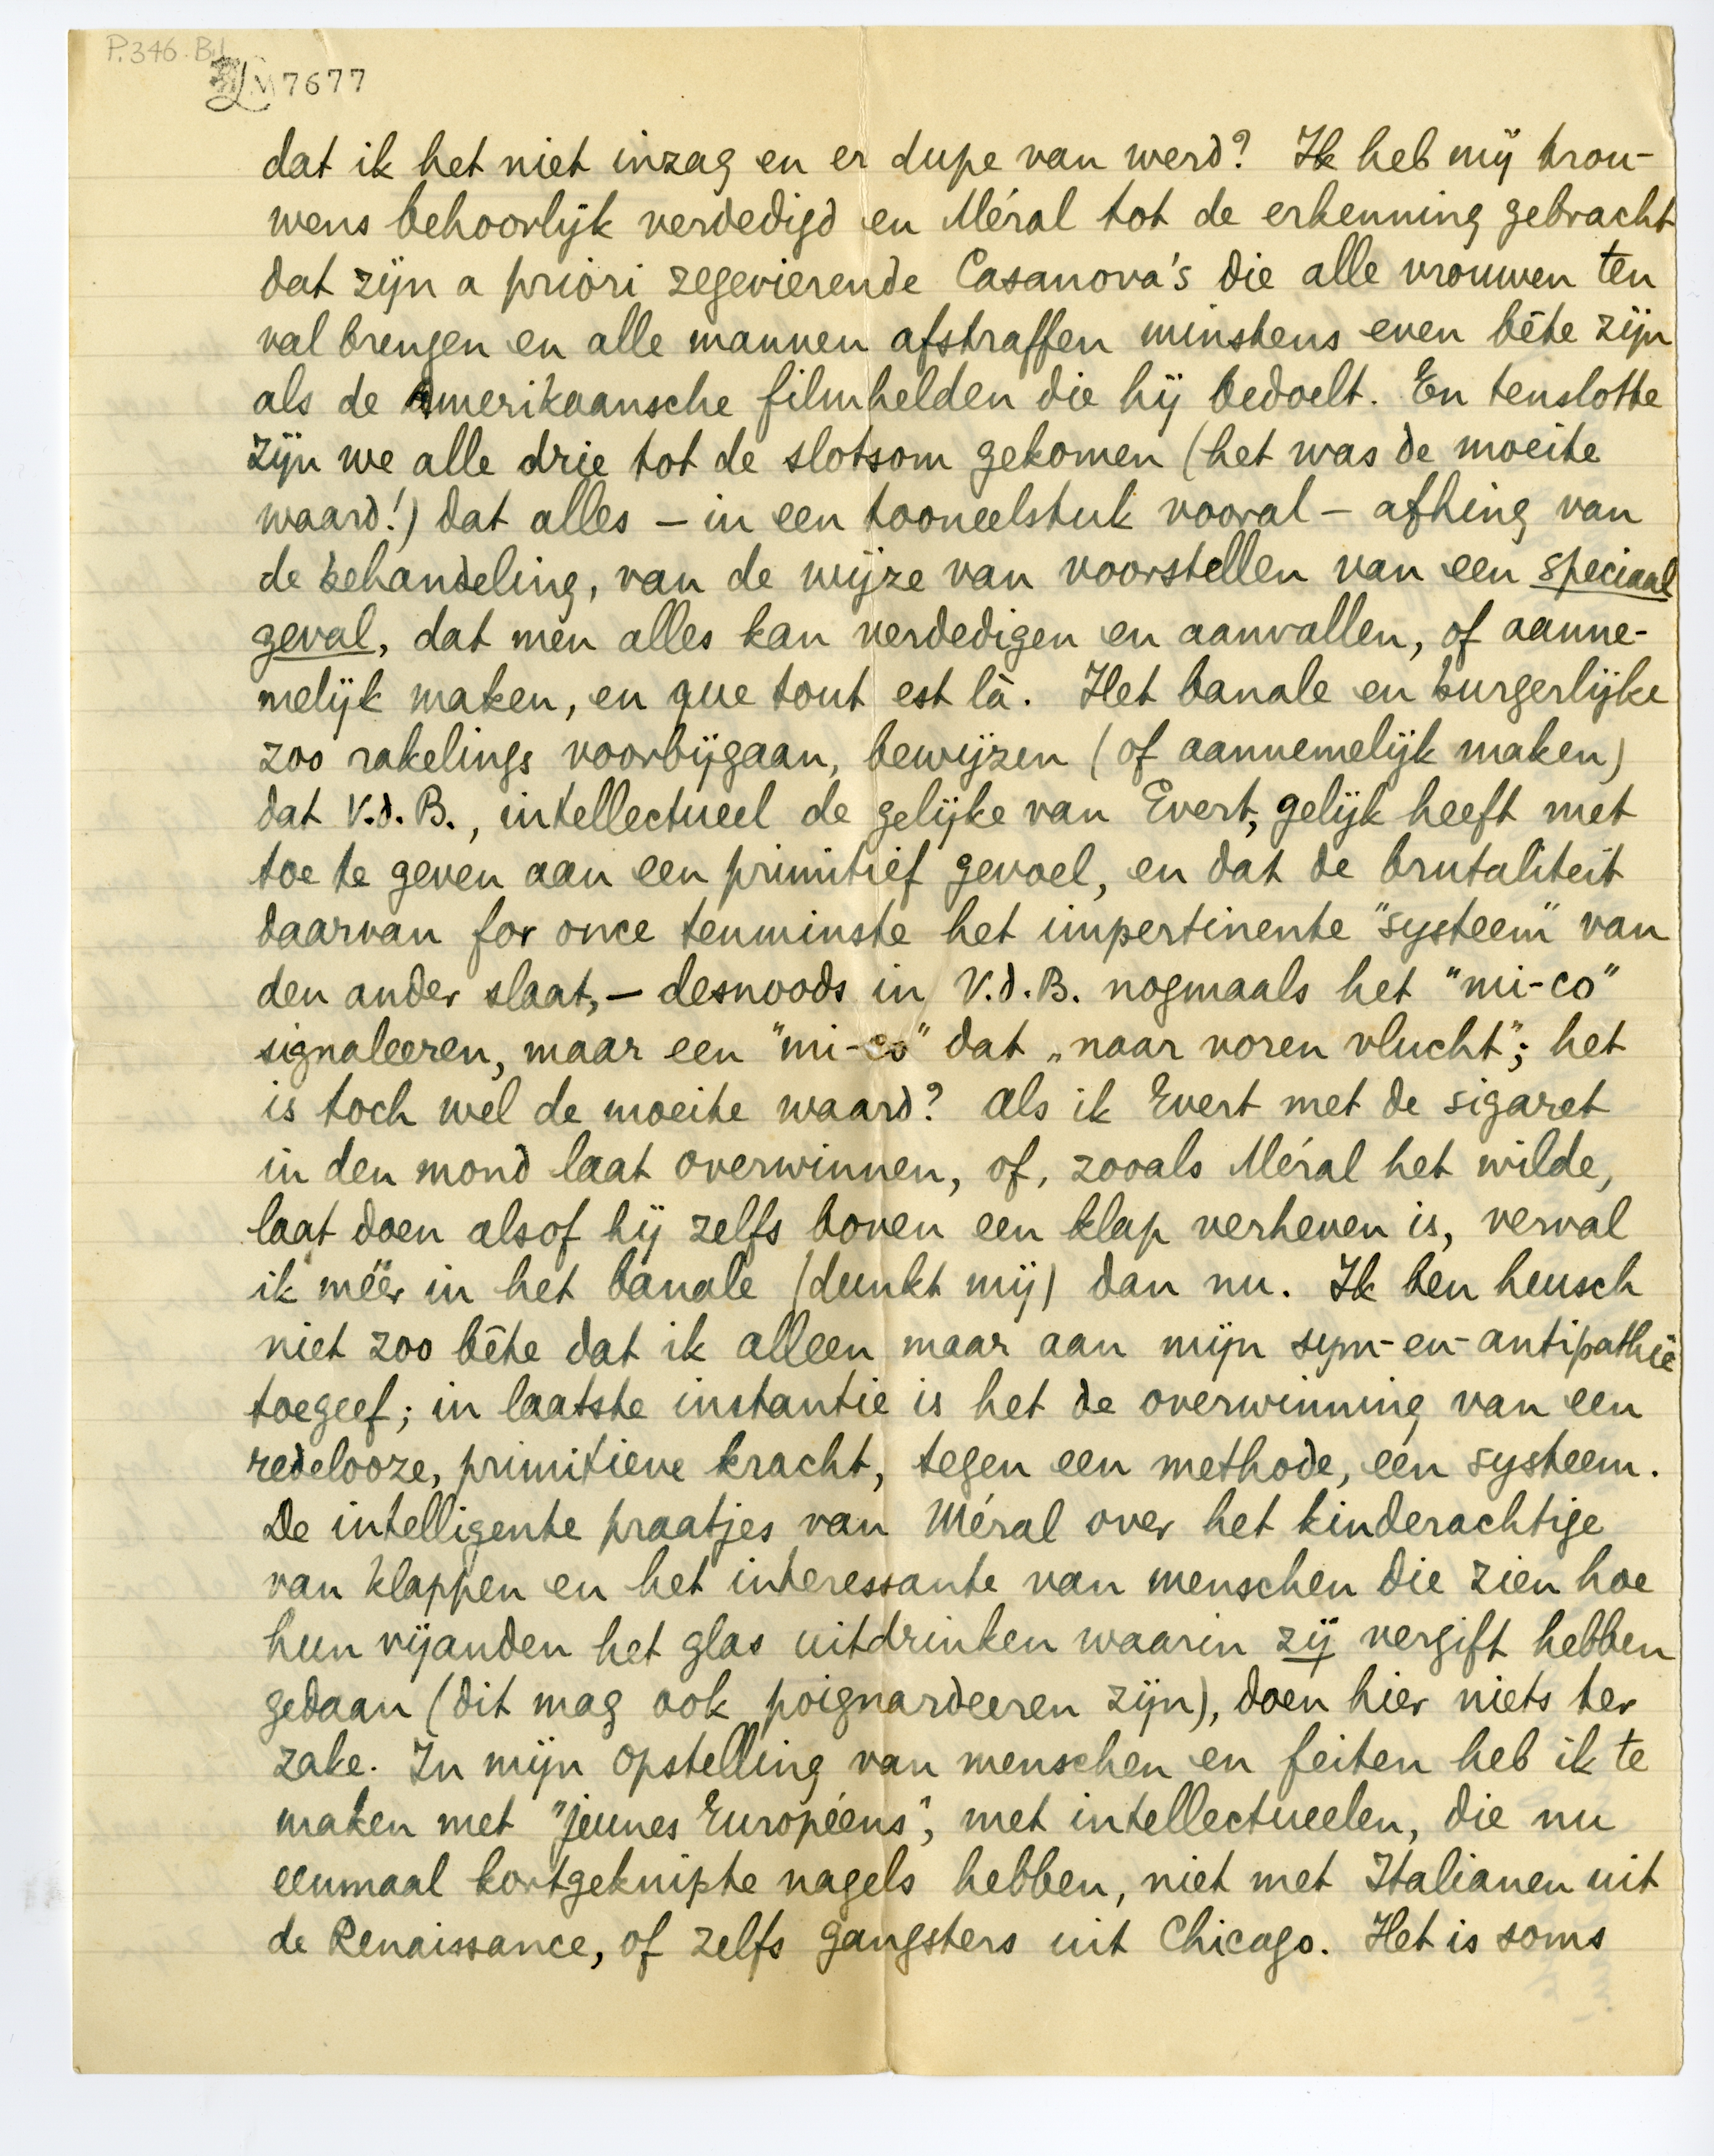 P.346.B.1
LM 7677
dat ik het niet inzag en er dupe van werd? Ik heb mij trou-
wens behoorlijk verdedigd en Méral tot de erkenning gebracht
dat zijn a priori zegevierende Casanova's die alle vrouwen ten
val brengen en alle mannen afstraffen minstens even bête zijn
als de Amerikaansche filmhelden die hij bedoelt. En tenslotte
zijn we alle drie tot de slotsom gekomen (het was de moeite
waard!) dat alles – in een tooneelstuk vooral – afhing van
de behandeling, van de wijze van voorstellen van een speciaal
geval, dat men alles kan verdedigen en aanvallen, of aanne-
melijk maken, en que tout est là. Het banale en burgerlijke
zoo rakelings voorbijgaan, bewijzen (of aannemelijk maken)
dat V.d.B., intellectueel de gelijke van Evert, gelijk heeft met
toe te geven aan een primitief gevoel, en dat de brutaliteit
daarvan for once tenminste het impertinente "systeem" van
den ander slaat, – desnoods in V.d.B. nogmaals het "mi-co"
signaleeren, maar een "mi-co" dat „naar voren vlucht"; het
is toch wel de moeite waard? Als ik Evert met de sigaret
in den mond laat overwinnen, of, zooals Méral het wilde,
laat doen alsof hij zelfs boven een klap verheven is, verval
ik méér in het banale (dunkt mij) dan nu. Ik ben heusch
niet zoo bête dat ik alleen maar aan mijn sym-en-antipathie
toegeef; in laatste instantie is het de overwinning van een
redelooze, primitieve kracht, tegen een methode, een systeem.
De intelligente praatjes van Méral over het kinderachtige
van klappen en het interessante van menschen die zien hoe
hun vijanden het glas uitdrinken waarin zij vergift hebben
gedaan (dit mag ook poignardeeren zijn), doen hier niets ter
zake. In mijn opstelling van menschen en feiten heb ik te
maken met "jeunes Européens", met intellectueelen, die nu
eenmaal kortgeknipte nagels hebben, niet met Italianen uit
de Renaissance, of zelfs gangsters uit Chicago. Het is soms